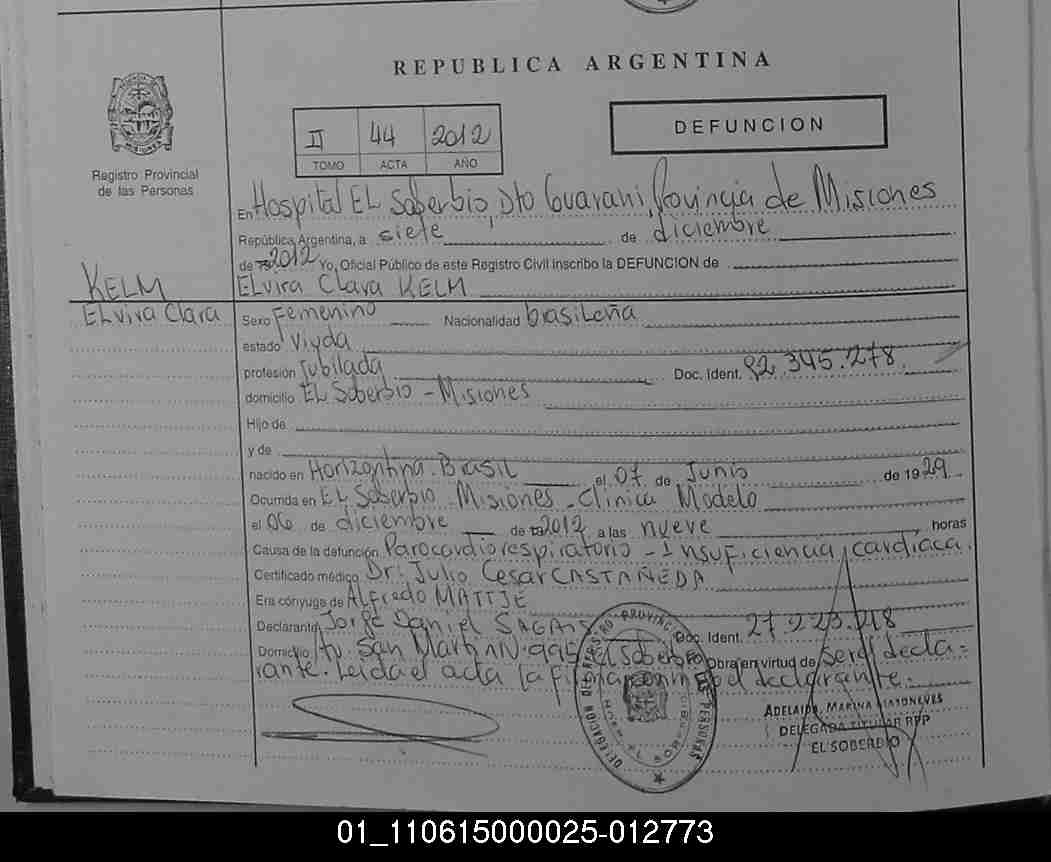 REPUBLICA ARGENTINA
II 44 2012
TOMO ACTA AÑO
DEFUNCION
Registro Provincial
de las Personas
En Hospital EL Soberbio, Dto Guarani, Provincia de Misiones
República Argentina, a siete de diciembre
de 2012 Yo, Oficial Público de este Registro Civil inscribo la DEFUNCION de
ELvira Clara KELM
KELM
ELvira Clara
Sexo Femenino Nacionalidad brasileña
estado Viuda
profesión Jubilada Doc. Ident. 92.345.278
domicilio EL Soberbio - Misiones
Hijo de
y de
nacido en Horizontina. Brasil el 07 de Junio de 1929
Ocurrida en EL Soberbio Misiones - Clinica Modelo
el 06 de diciembre de 2012 a las nueve horas
Causa de la defunción Parocardiorespiratorio - Insuficiencia cardíaca.
Certificado médico Dr: Julio Cesar CASTAÑEDA
Era cónyuge de ALfredo MATTJE
Declarante Jorge Daniel Doc. Ident. 27.223.218
Domicilio San Martin N° 995 el Soberbio Obra en virtud de ser el decla=
rante. Leida el acta la firma conmigo el declarante.
DELEGACION DEL REGISTRO PROVINCIAL DE LAS PERSONAS
ADELAIDA MARINA
DELEGADA TITULAR RPP
EL SOBERBIO
01_110615000025-012773